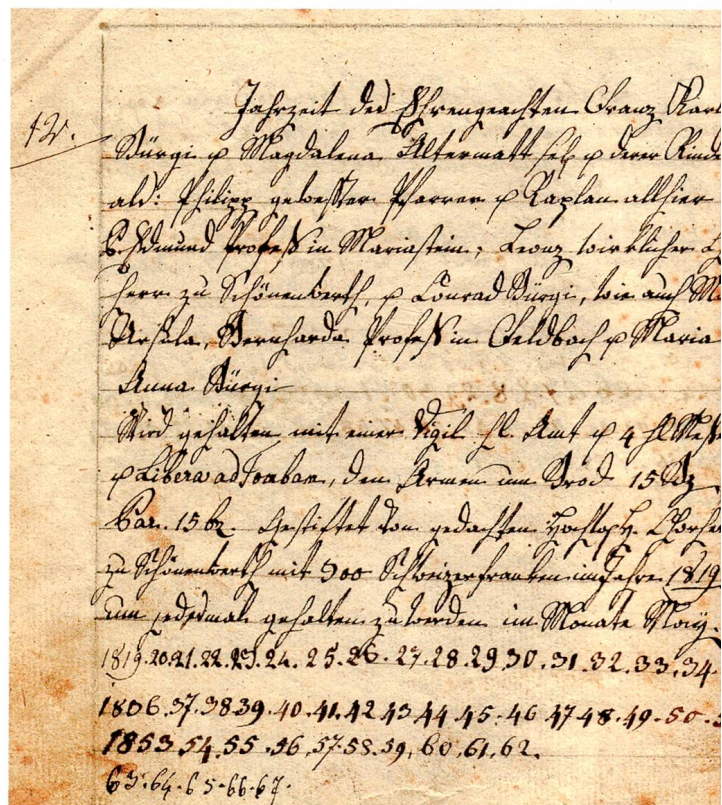 12.
Jahrzeit des Ehrengeachten Franz Karl
Bürgi u Magdalena Altermatt sel. u derer Kinde
als: Philipp gewesster Pfarrer u Kaplan allhier
P. Edmund Profess in Mariastein, Leonz wirklicher
herr zu Schönenwerth, u Conrad Bürgi, wie auch M
Ursula, Bernharda Profess in Feldbach u Maria
Anna Bürgi
Wird gehalten mit einer Vigil hl. Amt u 4 hl Mess
u Libera ad Tombam, den Armen um Brod 15 Bz
Par. 15 bz. Gestiftet von gedachten Chorher
zu Schönenwerth mit 300 Schweizerfranken im Jahre 1819
um jedesmal gehalten zu werden im Monate May.
1819.20.21.22.23.24.25.26.27.28.29.30.31.32.33.34.
1836.37.38.39.40.41.42.43.44.45.46.47.48.49.50.
1853.54.55.56.57.58.59,60,61,62.
63.64.65.66.67.